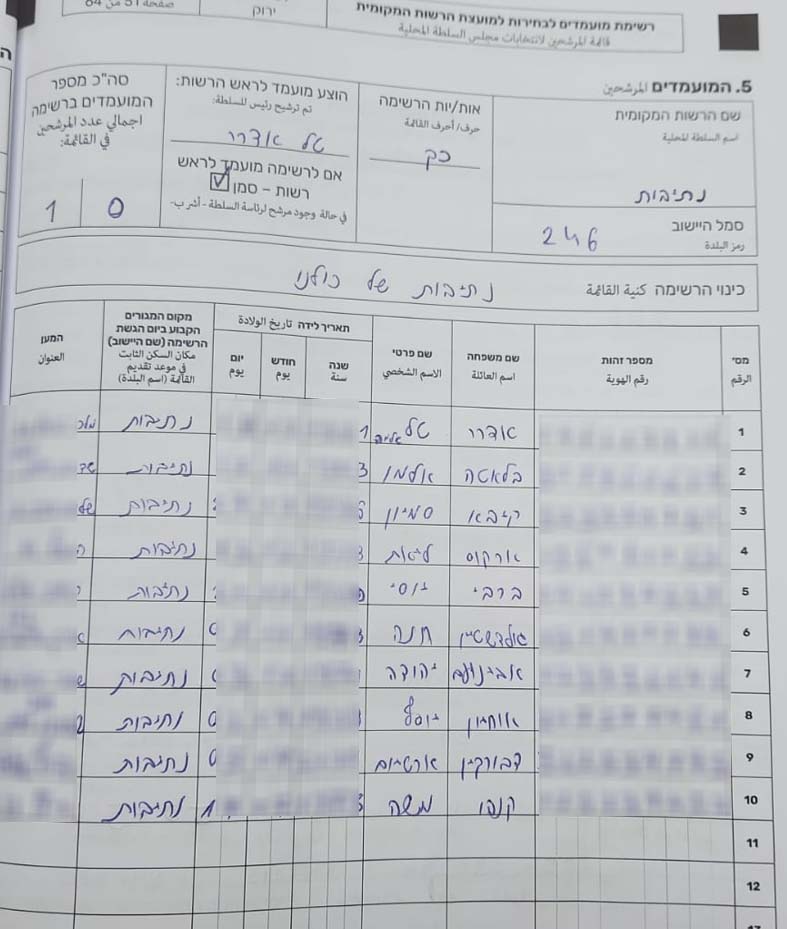 רשימת מועמדים לבחירות למועצת הרשות המקומית
قائمة المرشحين لانتخابات مجلس السلطة المحلية
ירוק
صفحة 51 من 64
5. המועמדים المرشحين
שם הרשות המקומית
اسم السلطة المحلية
נתיבות
סמל היישוב
رمز البلدة
246
אות/יות הרשימה
حرف/أحرف القائمة
כק
הוצע מועמד לראש הרשות:
تم ترشيح رئيس للسلطة:
טל אדרי
אם לרשימה מועמד לראש
רשות - סמן
في حالة وجود مرشح لرئاسة السلطة - أشر ب-
סה"כ מספר
המועמדים ברשימה
اجمالي عدد المرشحين
في القائمة:
1 0
כינוי הרשימה كنية القائمة נתיבות של כולנו
מס' الرقم
מספר זהות رقم الهوية
שם משפחה اسم العائلة
שם פרטי الاسم الشخصي
תאריך לידה تاريخ الولادة
שנה سنة
חודש يوم
יום يوم
מקום המגורים
הקבוע ביום הגשת
הרשימה (שם היישוב)
مكان السكن الثابت
في موعد تقديم
القائمة (اسم البلدة)
המען العنوان
1 אדרי טל נתיבות
2 בלאטה אלמו נתיבות
3 קיבא סמיון נתיבות
4 ארקוס ליאת נתיבות
5 ברבי יוסי נתיבות
6 גולדשטיין חנה נתיבות
7 אבינועם יהודה נתיבות
8 אוחיון יוסף נתיבות
9 דבורקין ארטיום נתיבות
10 קנפו משה נתיבות
11
12